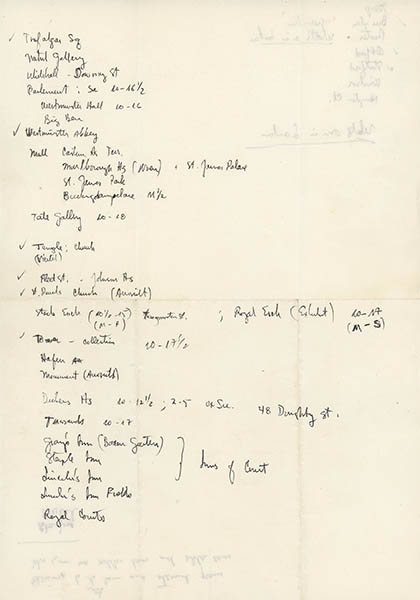 ✓ Trafalgar Sq
Natnl Gallery
Whitehall - Downing St
Parlement: Sa 10-16½
Westminster Hall 10-16
Big Ben
✓ Westminster Abbey
Mall Carlton Hs Terr.
Marlborough Hs (Wren) + St. James Palace
St. James Park
Buckinghampalace 11½
Tate Gallery 10-18
✓ Temple; church
✓ Fleet St. - Johnsons Hs
✓ St. Pauls Church (Aussicht)
Stock Exch (10½-15) ; Royal Exch (Exhibit) 10-17
(M-F) (M-S)
✓ Tower - collection 10-17½
Hafen
Monument (Aussicht)
Dickens Hs 10-12½; 2-5 48 Doughty St.
Tussauds 10-17
Gray's Inn (Bacon Garden)
Staple Inn } Inns of Court
Lincoln's Inn
Lincoln's Inn Fields
Royal Courts